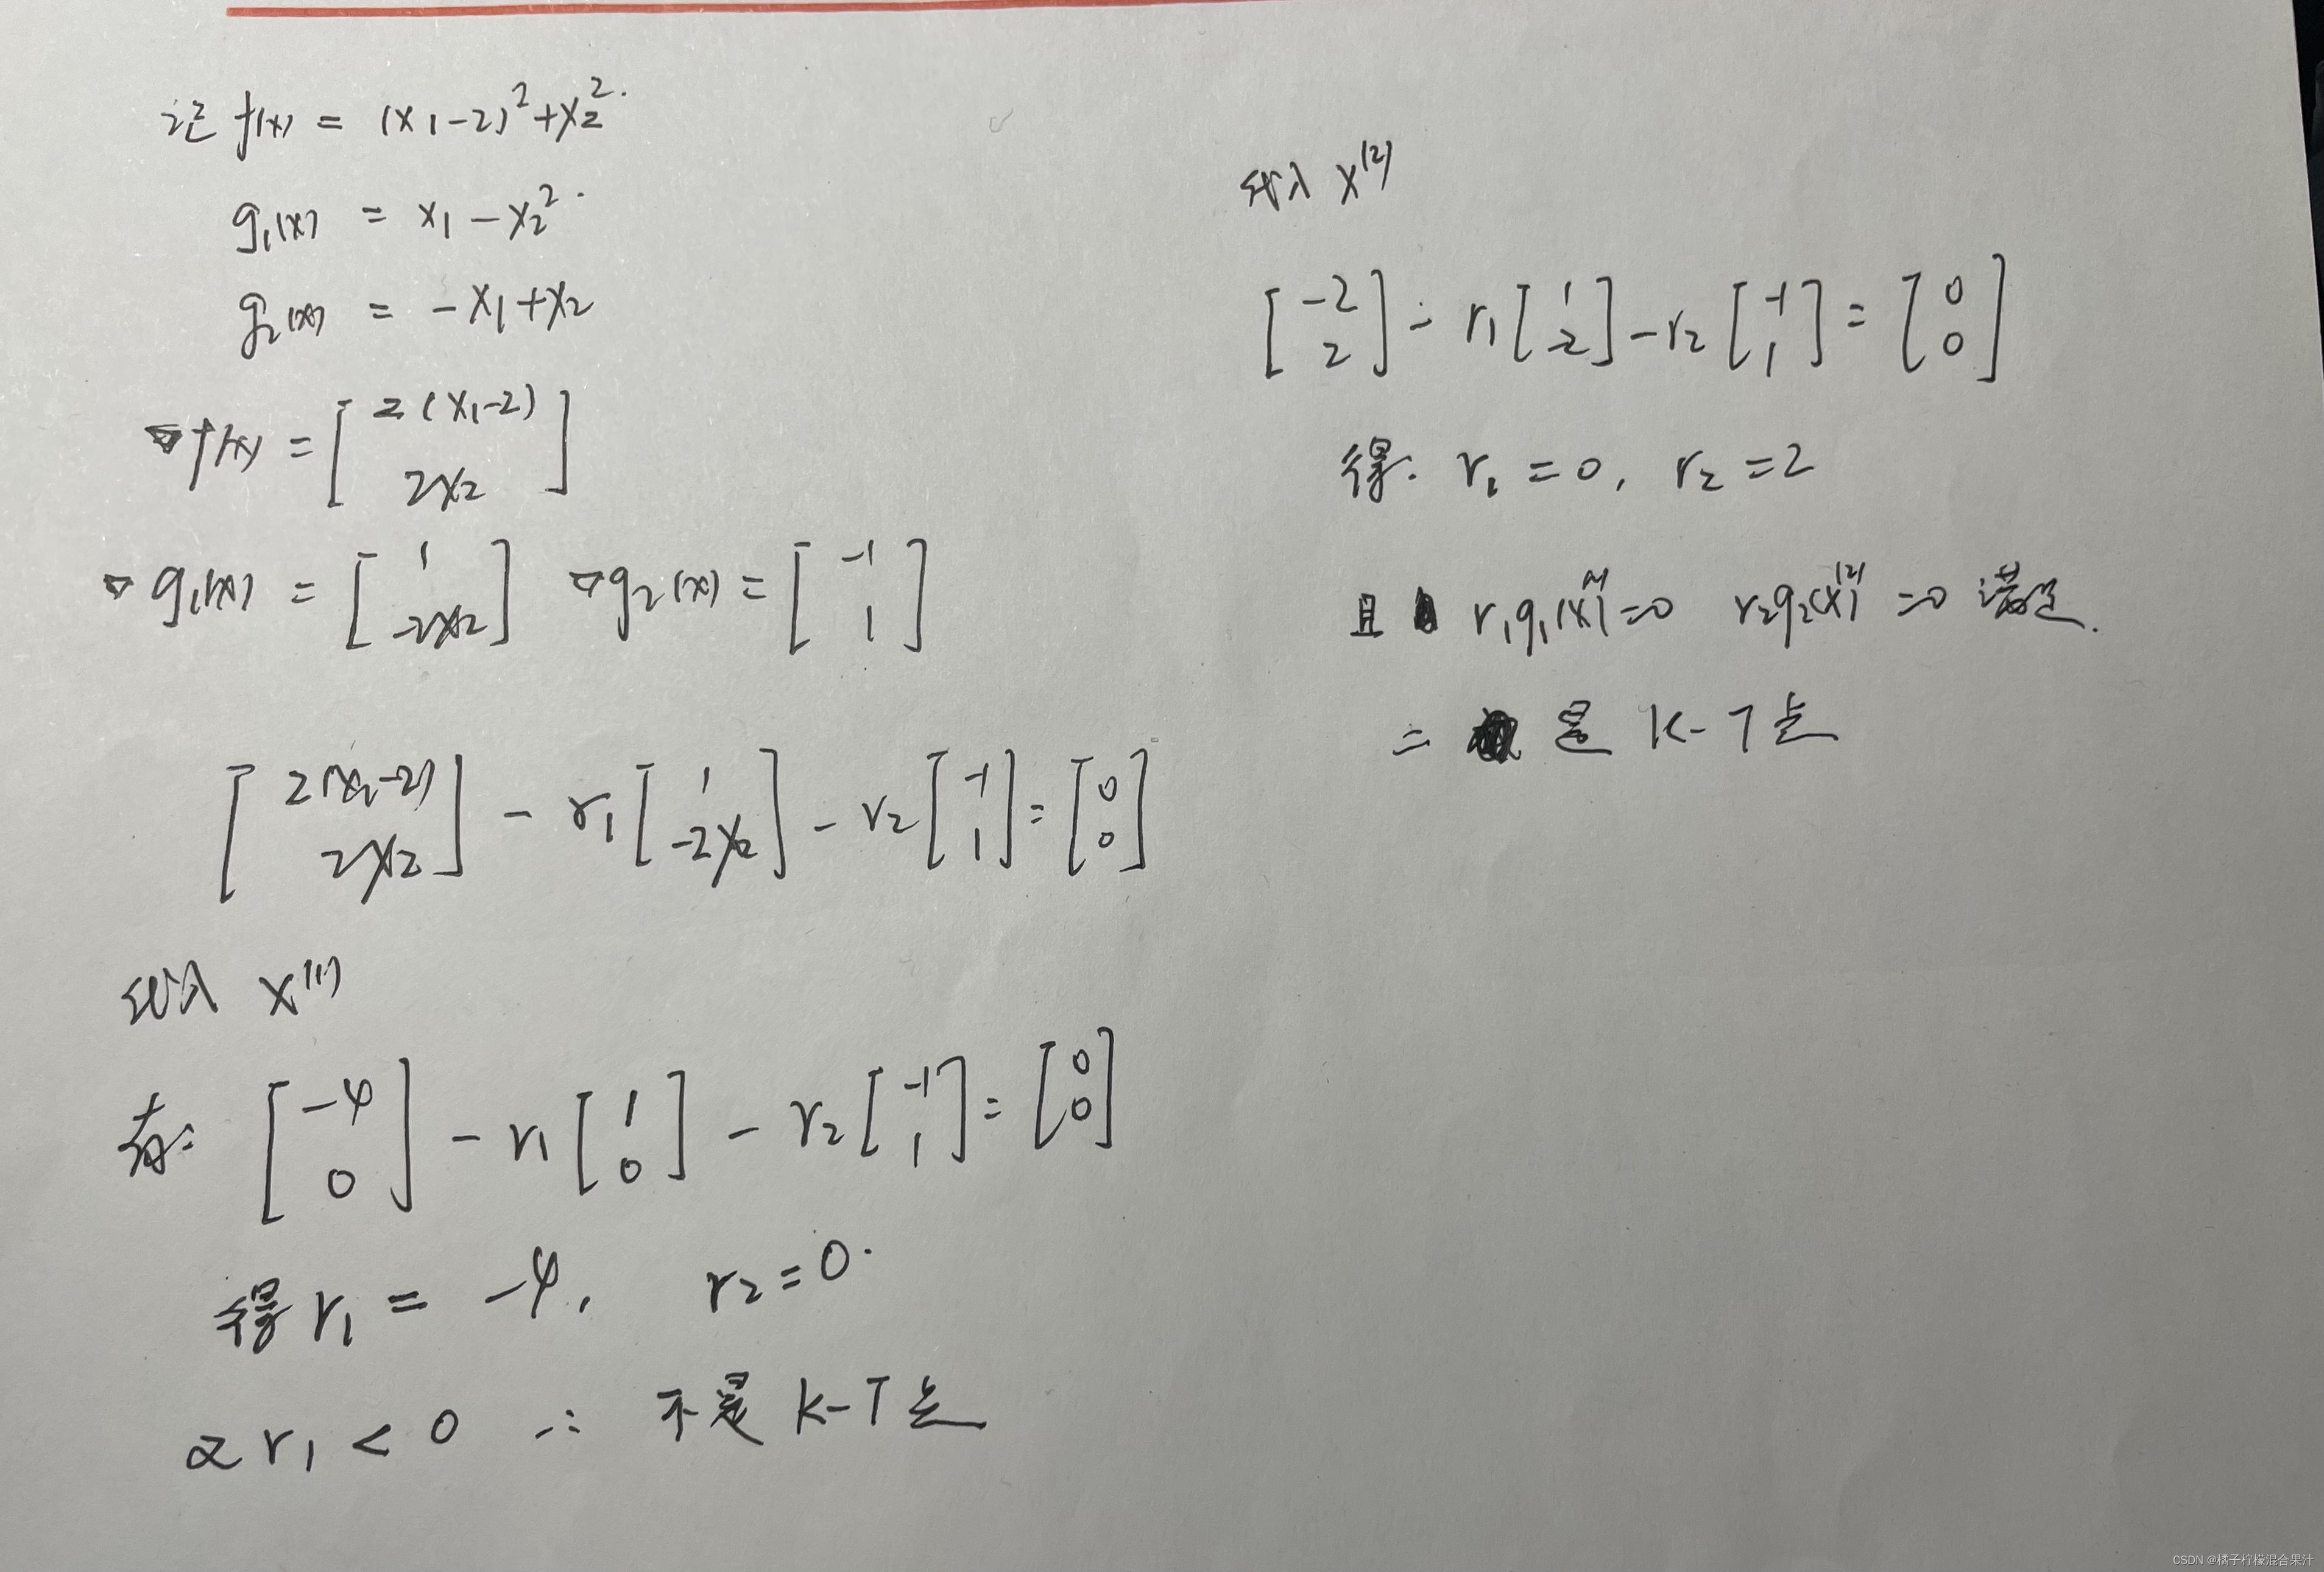 记 f(x) = (x₁-2)²+x₂².
g₁(x) = x₁-x₂².
g₂(x) = -x₁+x₂
▽f(x) = [2(x₁-2) 2x₂]
▽g₁(x) = [1 -2x₂] ▽g₂(x) = [-1 1]
[2(x₁-2) 2x₂] - r₁[1 -2x₂] - r₂[-1 1] = [0 0]
代入 x⁽¹⁾
有: [-4 0] - r₁[1 0] - r₂[-1 1] = [0 0]
得 r₁ = -4, r₂=0.
r₁<0 ∴ 不是 K-T点
代入 x⁽²⁾
[-2 2] - r₁[1 -2] - r₂[-1 1] = [0 0]
得. r₁=0, r₂=2
且 r₁g₁(x)=0 r₂g₂(x)⁽²⁾=0 满足.
∴ 是 K-T点
CSDN @橘子柠檬混合果汁